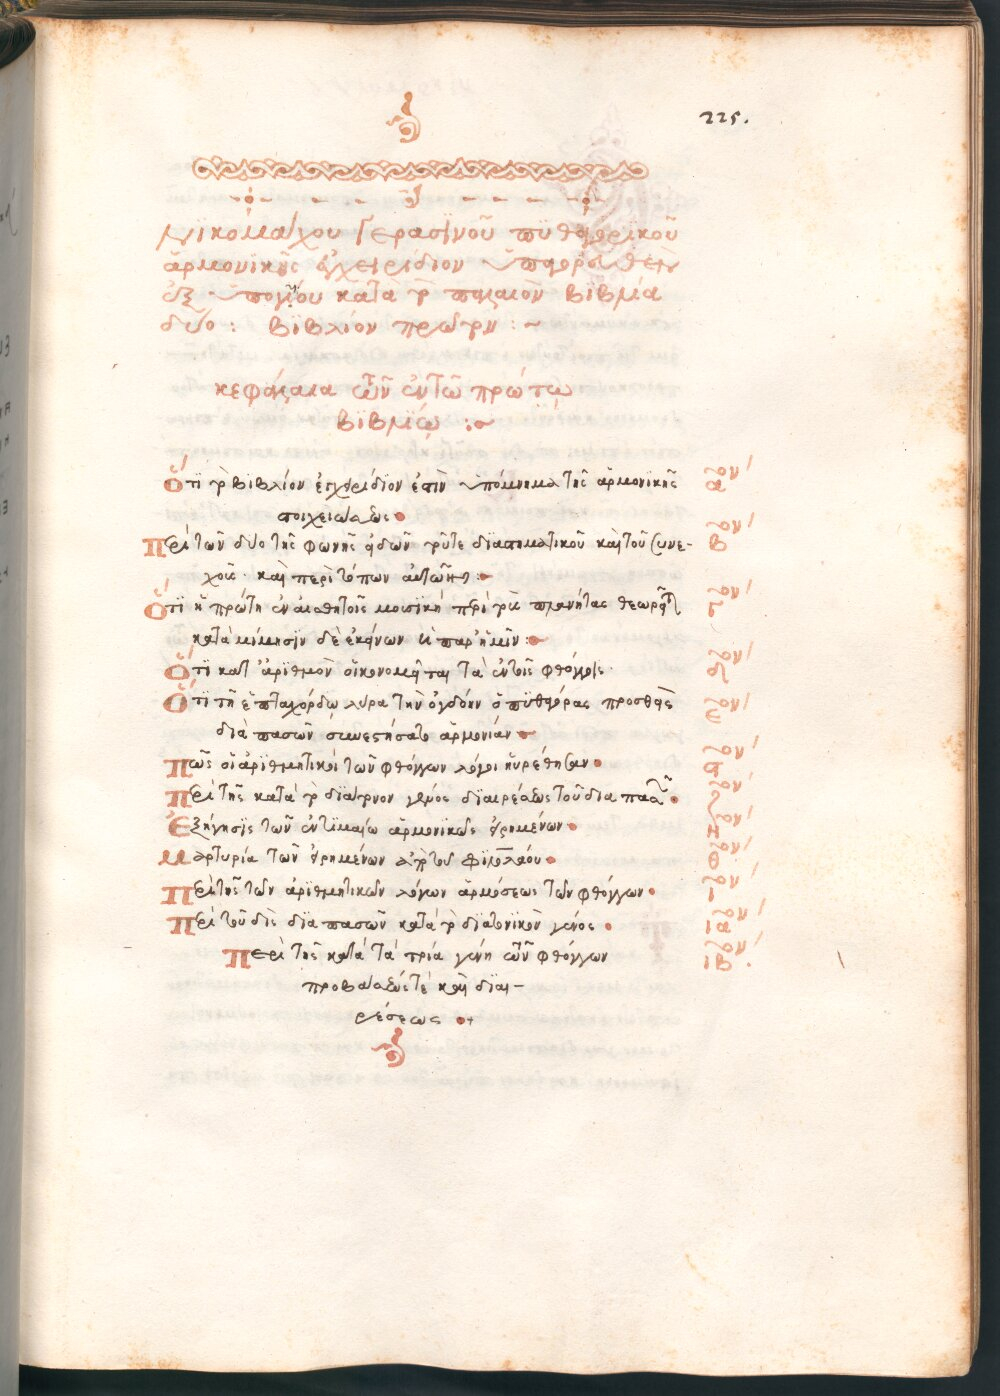 225.
Νικομάχου Γερασινοῦ πυθαγορικοῦ
ἁρμονικῆς ἐγχειρίδιον ὑπαγορευθὲν
ἐξ ὑπογυίου κατὰ τὸ παλαιὸν βιβλία
δύο : βιβλίον πρῶτον : ~
κεφάλαια τῶν ἐν τῶ πρώτω
βιβλίω :~
Ὅτι τὸ βιβλίον ἐγχειρίδιον ἐστὶν ὑπόμνημα τῆς ἁρμονικῆς αον
στοιχειώσεως
Περὶ τῶν δύο τῆς φωνῆς εἰδῶν τοῦ τε διαστηματικοῦ καὶ τοῦ συνε- βον
χοῦς· καὶ περὶ τόπων αὐτῶν
Ὅτι ἡ πρώτη ἐν αἰσθητοῖς μουσικὴ περὶ τοὺς πλανήτας θεωρεῖται γον
κατὰ μίμησιν δὲ ἐκείνων ἡ παρ' ἡμῖν :
Ὅτι κατ' ἀριθμὸν οἰκονομεῖται τὰ ἐν τοῖς φθόγγοις· δον
Ὅτι τῆ ἑπταχόρδω λύρα τὴν ὀγδόην ὁ πυθαγόρας προσθεὶς εον
διὰ πασῶν συνεστήσατο ἁρμονίαν
Πῶς οἱ ἀριθμητικοὶ τῶν φθόγγων λόγοι ηὑρέθησαν ςον
Περὶ τῆς κατὰ τὸ διάτονον γένος διαιρέσεως τοῦ δια πασῶν ζον
Ἐξήγησις τῶν ἐν τιμαίω ἁρμονικῶς εἰρημένων ηον
Μαρτυρία τῶν εἰρημένων ἀπὸ τοῦ φιλολάου θον
Περὶ τῆς τῶν ἀριθμητικῶν λόγων ἁρμόσεως τῶν φθόγγων ιον
Περὶ τοῦ δὶς δια πασῶν κατὰ τὸ διατονικὸν γένος ιαον
Περὶ τῆς κατὰ τὰ τρία γένη τῶν φθόγγων ιβον
προβάσεώς τε καὶ διαι-
ρέσεως